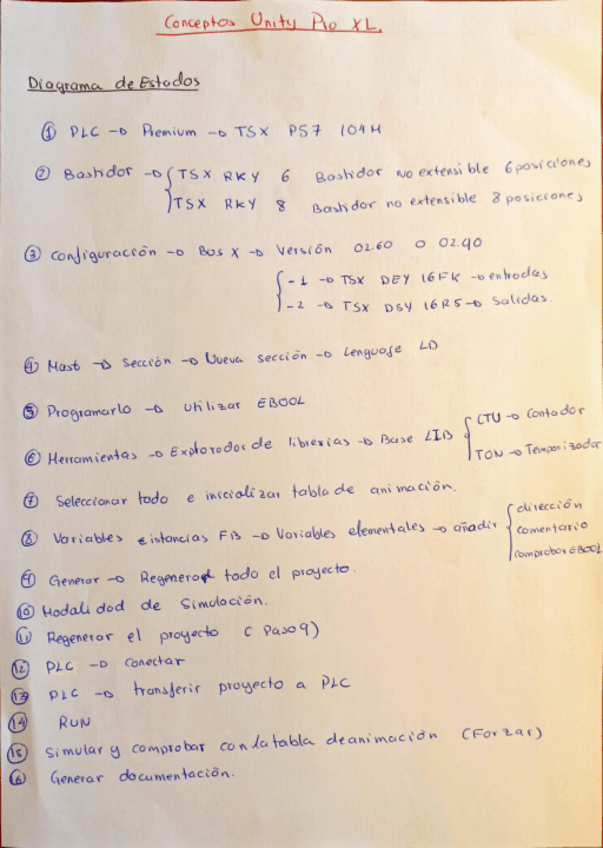 Conceptos Unity Pro XL.
Diagrama de Estados
① PLC → Premium → TSX P57 104M
② Bastidor → { TSX RKY 6 Bastidor no extensible 6 posiciones
TSX RKY 8 Bastidor no extensible 8 posiciones
③ Configuración → Bus X → Versión 02.60 o 02.40
{ -1 → TSX DEY 16FK → entradas
-2 → TSX DSY 16R5 → Salidas.
④ Mast → Sección → Nueva sección → Lenguaje LD
⑤ Programarlo → Utilizar EBOOL
⑥ Herramientas → Explorador de librerias → Base LIB { CTU → Contador
TON → Temporizador
⑦ Seleccionar todo e inicializar tabla de animación.
⑧ Variables e istancias FB → Variables elementales → añadir { dirección
comentario
comprobar EBOOL
⑨ Generar → Regenerar todo el proyecto.
⑩ Modalidad de Simulación.
⑪ Regenerar el proyecto (Paso 9)
⑫ PLC → conectar
⑬ PLC → transferir proyecto a PLC
⑭ RUN
⑮ Simular y comprobar con la tabla de animación (Forzar)
⑯ Generar documentación.